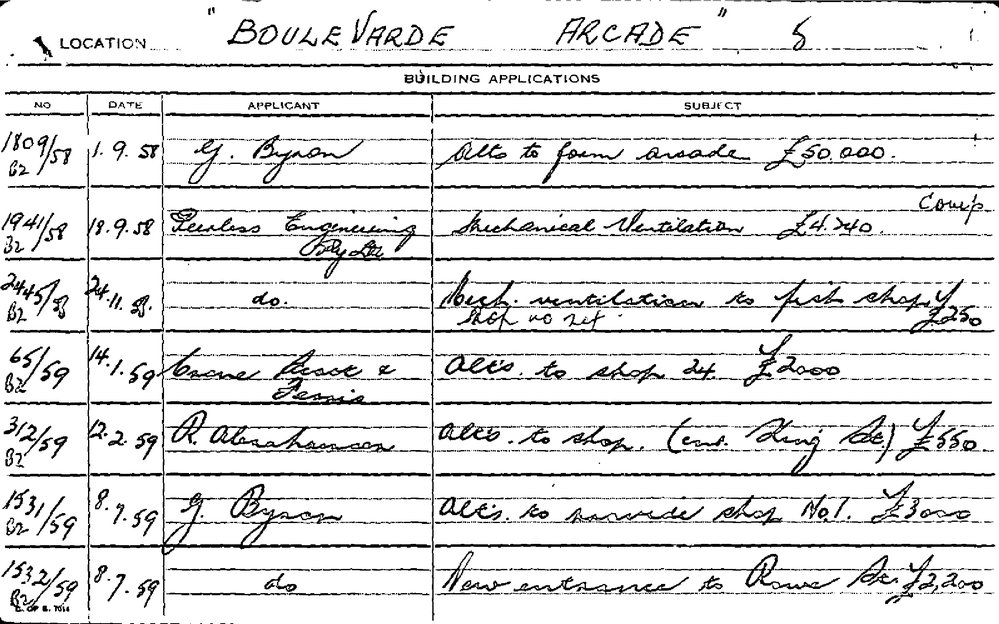 LOCATION "BOULEVARDE ARCADE"
BUILDING APPLICATIONS
NO DATE APPLICANT SUBJECT
1809/58 B2 1.9.58 G. Byron Alts to form arcade £50.000.
Comp
1941/58 B2 18.9.58 Peerless Engineering Mechanical Ventilation £4.240.
Pty Ltd
2445/58 B2 24.11.58. do. Mech. ventilation to fish shop
Shop no £250
65/59 B2 14.1.59 Crane & Alts. to shop 24 £2000
Ferris
312/59 B2 12.2.59 R. Abrahamson Alts. to shop. (ent. King St.) £550
1531/59 B2 8.7.59 G. Byron Alts. to provide shop No.1. £3000
1532/59 B2 8.7.59 do New entrance to Rowe St. £2,200
C. OF S. 7014